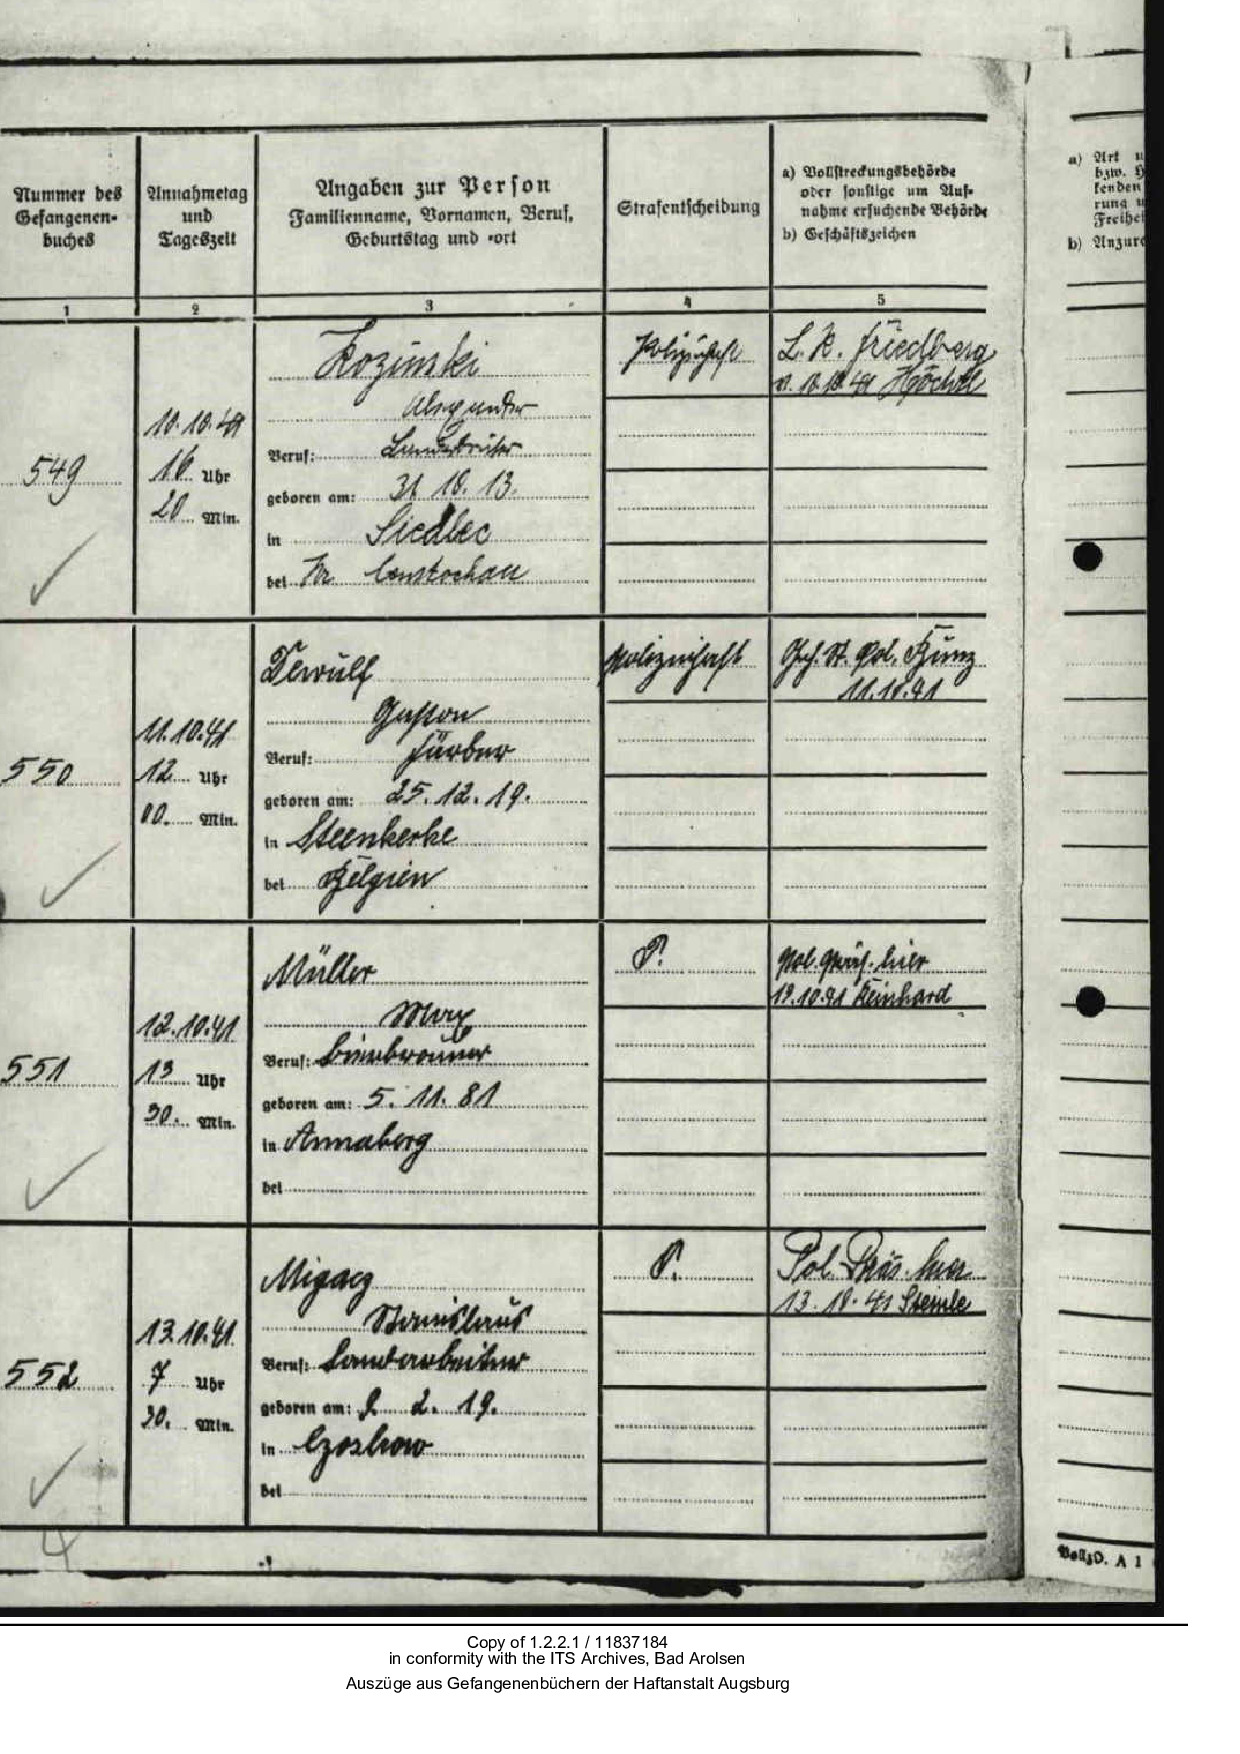 Nummer des
Gefangenen-
buches
Annahmetag
und
Tageszeit
Angaben zur Person
Familienname, Vornamen, Beruf,
Geburtstag und -ort
Strafentscheidung
a) Vollstreckungsbehörde
oder sonstige um Auf-
nahme ersuchende Behörde
b) Geschäftszeichen
a) Art u
bzw. H
kenden
rung u
Freihei
b) Anzure
1
2
3
4
5
549
10.10.41
16 Uhr
20 Min.
Kozinski
Alexander
Beruf: Landarbeiter
geboren am: 31 10. 13.
in Siedlec
bei Kr
Polizeihaft
L. R. Friedberg
550
11.10.41
12 Uhr
00. Min.
Dewulf
Gaston
Beruf: Färber
geboren am: 25. 12. 19.
in Steenkerke
bei Belgien
Polizeihaft
Geh. St. Pol. Künz
11.10.41
551
12.10.41
13 Uhr
30. Min.
Müller
Max
Beruf:
geboren am: 5. 11. 81
in Annaberg
bei
P.
Pol. Präs. hier
Reinhard
552
13.10.41.
7 Uhr
30. Min.
Migacz
Stanislaus
Beruf: Landarbeiter
geboren am: 2. 19.
in
bei
P.
Pol. Präs. hier
13. 10. 41 Steinle
4
VollzO. A 1
Copy of 1.2.2.1 / 11837184
in conformity with the ITS Archives, Bad Arolsen
Auszüge aus Gefangenenbüchern der Haftanstalt Augsburg